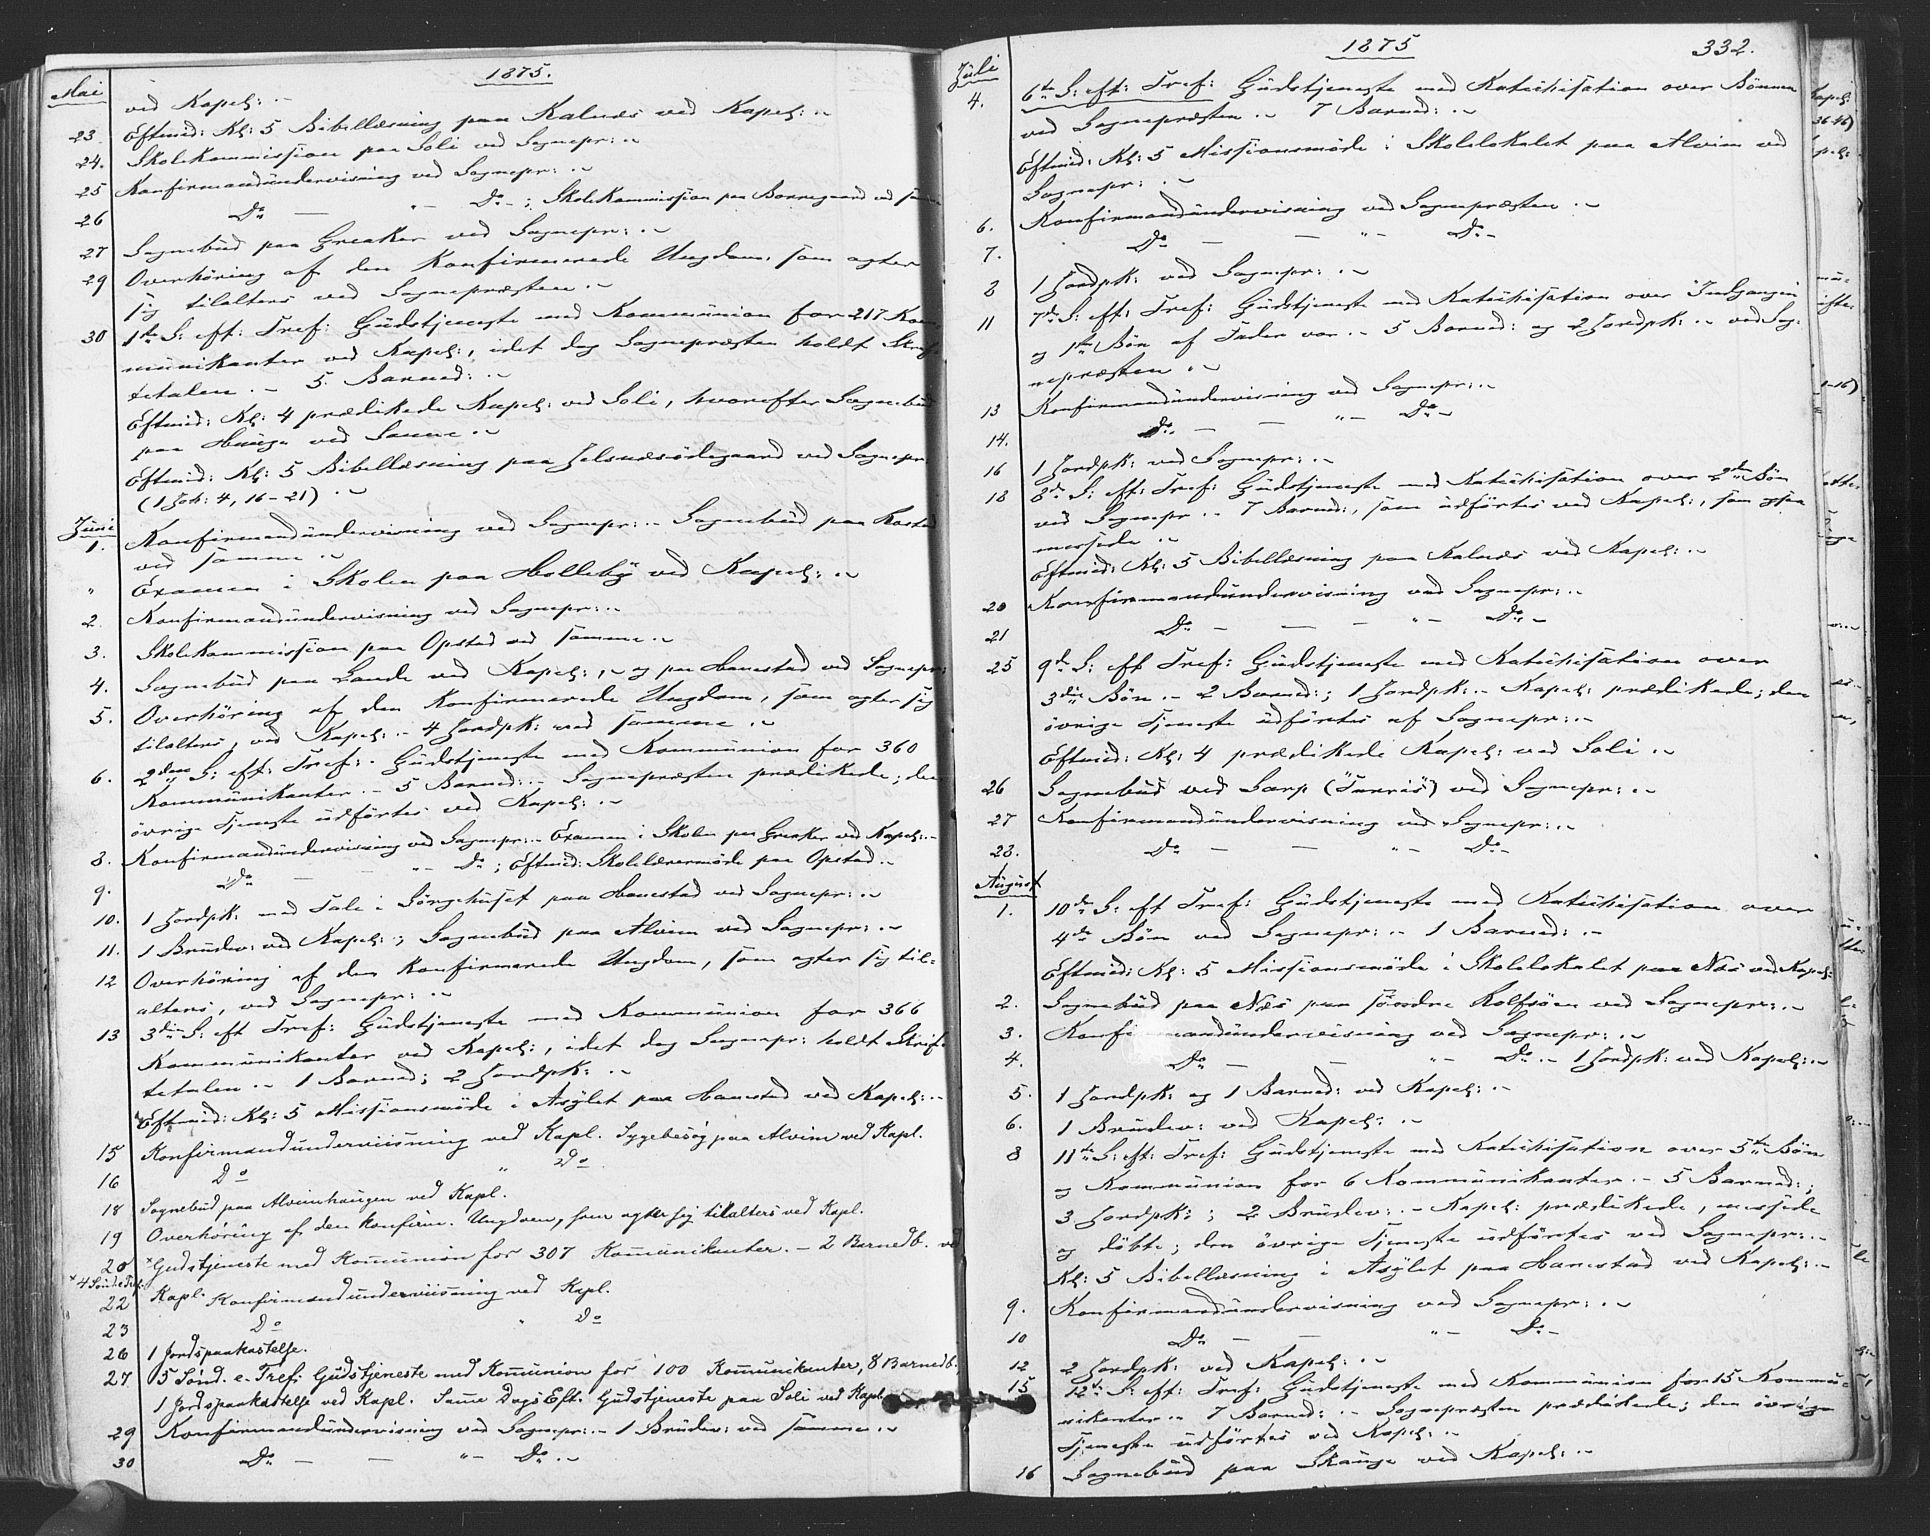 1875.
Mai
ved Kapel: .~
23 Eftmid: Kl: 5 Bibellæsning paa Kalnæs ved Kapel: .~
24. Skolekommission paa Soli ved Sognepr: .~
25 Konfirmandündervisning ved Sognepr: .~
26 Do — „ — Do - ; Skolekommission paa Borregaard ved samme
27 Sognebüd paa Greaker ved Sognepr: .~
29 Overhöring af den Konfirmerede Ungdom, som agter
sig tilalters ved Sognepræsten .~
30 1ste S: eft: Tref: Güdstjeneste med Kommünion for 217 Kom
münikanter ved Kapel:, idet dog Sognepræsten holdt Skrif
tetalen .- 5 Barned: .~
Eftmid: Kl: 4 prædikede Kapel: ved Soli, hvorefter Sognebüd
paa Hauge ved Samme .~
Eftmid: Kl: 5 Bibellæsning paa Jelsnæsödegaard ved Sognepr:
(1 Joh: 4, 16-21) .~
Juni
1. Konfirmandündervisning ved Sognepr: .- Sognebüd paa
ved samme .~
„ Examen i Skolen paa Holleby ved Kapel: .~
2. Konfirmandündervisning ved Sognepr: .~
3. Skolekommission paa Opstad ved samme .~
4. Sognebüd paa Lande ved Kapel:, og paa Hanestad ved Sognepr:
5. Overhöring af den Konfirmerede Ungdom, som agter sig
tilalters, ved Kapel: .- 4 Jordpk: ved samme .~
6. 2den S: eft: Tref: . Güdstjeneste med Kommünion for 360
Kommünikanter .- 5 Barned: .- Sognepræsten prædikede; den
övrige Tjeneste üdförtes ved Kapel: .~
8. Konfirmandündervisning ved Sognepr: .- Examen i Skolen paa Greaker ved Kapel: .-
9. Do — — „ — Do ; Eftmid: Skolelærermöde paa Opstad .-
10. 1 Jordpk: med Tale i Sörgehuset paa Hanestad ved Sognepr: .~
11. 1 Brüdev: ved Kapel: ; Sognebüd paa Alvim ved Sognepr: .~
12 Overhöring af den Konfirmerede Ungdom, som agter sig til=
alters, ved Sognepr: .~
13 3die S: eft Tref: Güdstjeneste med Kommünion for 366
Kommünikanter ved Kapel:, idet dog Sognepr: holdt Skrif
tetalen .- 1 Barned; 2 Jordpk: .~
Eftmid: Kl: 5 Missionsmöde i Asylet paa Hanestad ved Kapel: .-
15 Konfirmandunderviisning ved Kapl. Sygebesög paa Alvim ved Kapl.
16 Do „ Do
18 Sognebud paa Alvimhaugen ved Kapl.
19 Overhøring af den konfirm. Ungdom, som agter sig tilalters ved Kapl.
20 ×Gudstjeneste med Kommunion for 307 Kommunikanter. - 2 Barnedb. ved
×4 Sønd e Tref: Kapl.
22 Konfirmandunderviisning ved Kapl.
23 Do „ Do
26 1 Jordspaakastelse.
27 5 Sønd. e. Tref: Gudstjeneste med Kommunion for 100 Kommunikanter, 8 Barnedb.,
1 Jordspaakastelse ved Kapl. Samme Dags Eft. Gudstjeneste paa Soli ved Kapl.
29 Konfirmandündervisning ved Sognepr: .- 1 Brüdev: ved samme .~
30 Do — — „ - Do .~
1875 332.
Juli
4. 6te S: eft: Tref: Güdstjeneste med Katechisation over Bönnen
ved Sognepræsten .~ 7 Barned: .~
Eftmid: Kl: 5 Missionsmöde i Skolelokalet paa Alvim ved
Sognepr: .~
6. Konfirmandündervisning ved Sognepræsten .~
7. Do — — „ - Do -
8 1 Jordpk: ved Sognepr: .~
11 7de S: eft: Tref: Güdstjeneste med Katechisation over Indgangen
og 1ste Bön af Fader vor .- 5 Barned: og 2 Jordpk: .~ ved Sog-
nepræsten .~
13 Konfirmandündervisning ved Sognepr: .~
14. Do — — „ - Do -
16 1 Jordpk: ved Sognepr: .~
18 8de S: eft: Tref: Güdstjeneste med Katechisation over 2den Bön
ved Sognepr .- 7 Barned:, som üdförtes ved Kapel:, som ogsaa
messede .~
Eftmid: Kl: 5 Bibellæsning paa Kalnæs ved Kapel: .~
20 Konfirmandündervisning ved Sognepr: .~
21 Do — — — „ - Do -
25 9de S: eft Tref: Güdstjeneste med Katechisation over
3die Bön .- 2 Barned: ; 1 Jordpk: .- Kapel: prædikede; den
övrige Tjeneste üdförtes af Sognepr: .-
Eftmid: Kl: 4 prædikede Kapel: ved Soli .~
26 Sognebüd ved Sarp ("Tarris") ved Sognepr: .~
27 Konfirmandündervisning ved Sognepr: .~
28. Do — — „ - Do -
August
1. 10de S: eft Tref: Güdstjeneste med Katechisation over
4de Bön ved Sognepr: .- 1 Barned: .-
Eftmid: Kl: 5 Missionsmöde i Skolelokalet paa Næs ved Kapel:
2. Sognebüd paa Næs paa söndre Rolfsöen ved Sognepr: .~
3. Konfirmandündervisning ved Sognepr: .~
4. Do — — „ - Do .- 1 Jordpk: ved Kapel: .~
5. 1 Jordpk: og 1 Barned: ved Kapel: .-
6. 1 Brüdev: ved Kapel: .~
8 11te S: eft: Tref: Güdstjeneste med Katechisation over 5te Bön
og Kommünion for 6 Kommünikanter .- 5 Barned: ;
3 Jordpk: ; 2 Brüdev: .- Kapel: prædikede, messede
og döbte; den övrige Tjeneste üdförtes ved Sognepr: .-
Kl: 5 Bibellæsning i Asylet paa Hanestad ved Kapel: .-
9. Konfirmandündervisning ved Sognepr: .~
10 Do — — „ - Do -
12 2 Jordpk: ved Kapel: .~
15 12te S: eft: Tref: Güdstjeneste med Kommünion for 15 Kommü=
nikanter .~ 7 Barned: .- Sognepræsten prædikede; den övrige
Tjeneste üdförtes ved Kapel: .~
16 Sognebüd paa Skauge ved Kapel: .~